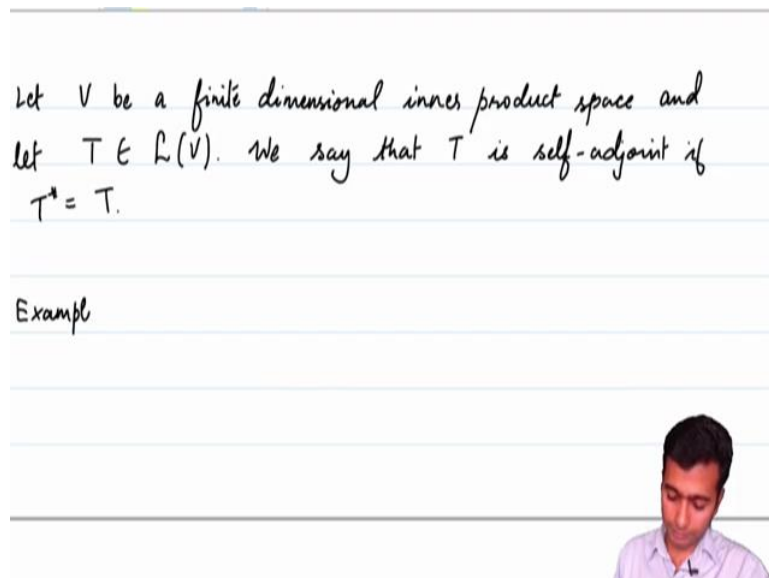 Let V be a finite dimensional inner product space and
let T ∈ L(V). We say that T is self-adjoint if
T* = T.
Exampl